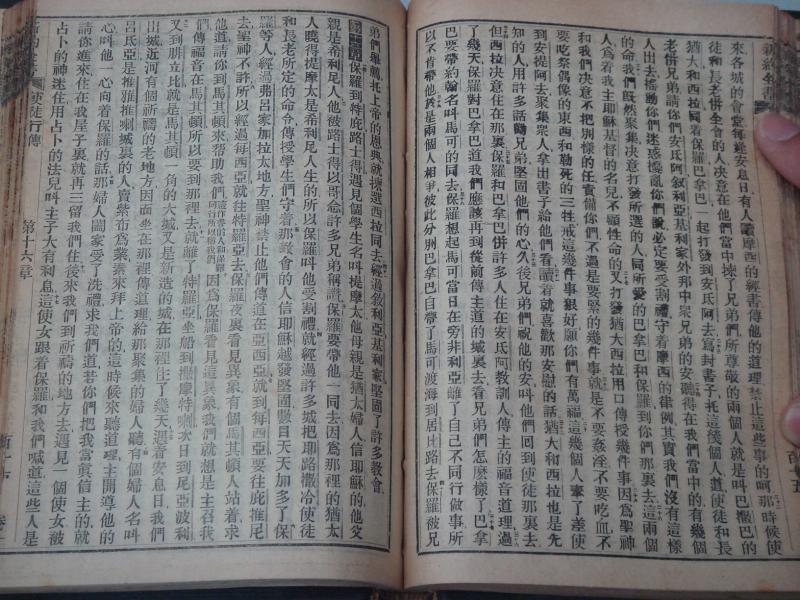 來各城的會堂每逢安息日有人讀摩西的經書傳他的道理禁止這些事的呵那時候使
徒和長老併全會的人决意在他們當中揀了兄弟們所尊敬的兩個人就是叫巴撒巴的
猶大和西拉同着保羅巴拿巴一起打發到安氏阿去寫封書子托這幾個人道使徒和長
老併兄弟請你們安氏阿叙利亞基利家外邦中衆兄弟的安聽得在我們當中的有幾個
人出去搖動你們迷惑擾亂你們說必定要受割禮守着摩西的律例其實我們沒有這樣
命我們既然聚集决意打發所選的人同所愛的巴拿巴和保羅到你們那裏去這兩個
人爲着我主耶穌基督的名兒不顧性命的又打發猶大西拉用口傳授幾件事因爲聖神
和我們决意不把別樣的任責備你們不過是要緊的幾件事就是不要姦淫不要吃血不
要吃祭偶像的東西和勒死的三牲戒這幾件事狠好願你們有萬福這幾個人奉了差使
到安提阿去聚集衆人拿出書子給他們看讀着就喜歡那安慰的話猶大和西拉也是先
知的人用許多話勸兄弟堅固他們的心久後兄弟們祝他們的安叫他們回到使徒那裏去
但西拉决意住在那裏保羅和巴拿巴併許多人住在安氏阿教訓人傳主的福音道理過
了幾天保羅對巴拿巴道我們應該再到從前傳主道的城裏去看兄弟們怎麽樣了巴拿
巴要帶約翰名叫馬可的同去保羅想起馬可當日在旁非利亞離了自己不同行做事所
以不肯帶他於是兩個人相爭彼此分別巴拿巴自帶了馬可渡海到居比路去保羅被兄
弟們囑託上帝的恩典就揀選西拉同去經過叙利亞基利家堅固了許多教會
保羅到特庇路士得遇見個學生名叫提摩太他母親是猶太婦人信耶穌的他父
親是希利尼人他彼路士得以哥念許多兄弟稱讚保羅要帶他一同去因爲那裡的猶太
人曉得提摩太希利尼人生的所以保羅叫他受割禮就經過許多城把耶路撒冷使徒
和長老所定的命令傳授學生們守着那教會的人信耶穌越發堅固數目天天加多了保
羅等人經過弗呂家加拉太地方聖神禁止他們傳道在亞西亞就到每西亞要往庇推尼
去聖神不許所以經過每西亞就往特羅亞去保羅夜裏看見異象有個馬其頓人站着求
他道請你到馬其頓來帮助我們因爲保羅看見這異象我們就想是主召我
們傳福音在馬其頓所以要到那裡去就離了特羅亞坐船到撒摩特喇次日到尼亞波利
又到腓立比就是馬其頓一角的大城又是新造的城在那裡住了幾天遇着安息日我們
出城近河有個祈禱的老地方因而坐在那裡傳道理給那聚集的婦人聽有個婦人名叫
呂氏亞是推雅推喇城裏的人賣紫布爲業素來拜上帝的這時候來聽道理主開導他的
心叫他一心向着保羅的話那婦人闔家受了洗禮求我們道若你們把我當眞信主的就
請你進來住在我屋子裏就再三留我們住後來我們到祈禱的地方去遇見一個使女被
占卜的神迷住用占卜的法兒叫主子大有利息這使女跟着保羅和我們喊道這些人是
使徒行傳
第十六章